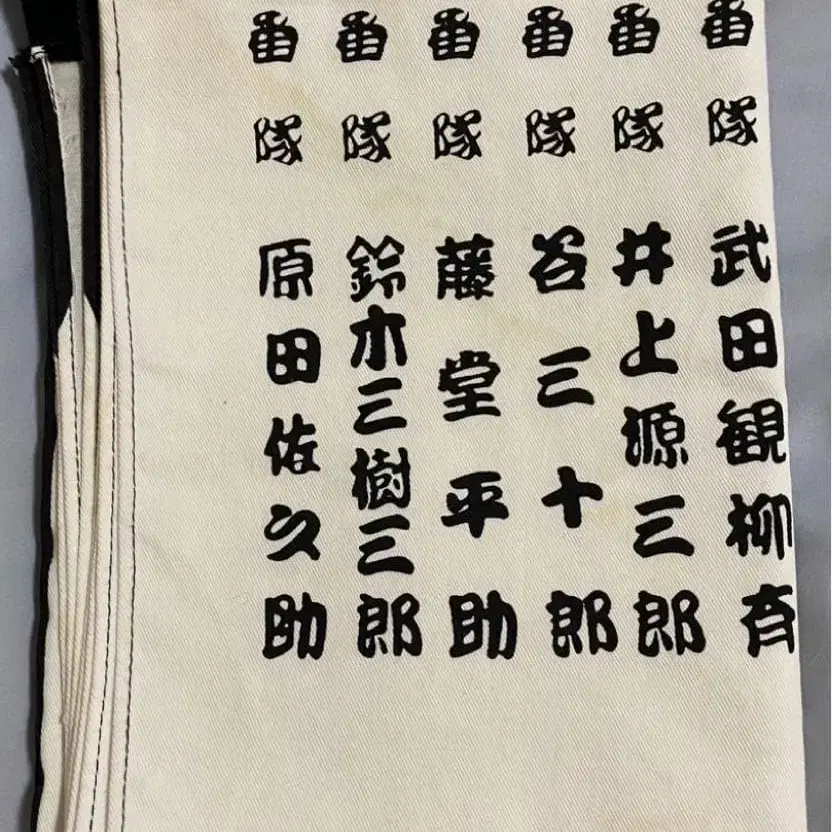 番隊 武田観柳斉
番隊 井上源三郎
番隊 谷三十郎
番隊 藤堂平助
番隊 鈴木三樹三郎
番隊 原田佐久助